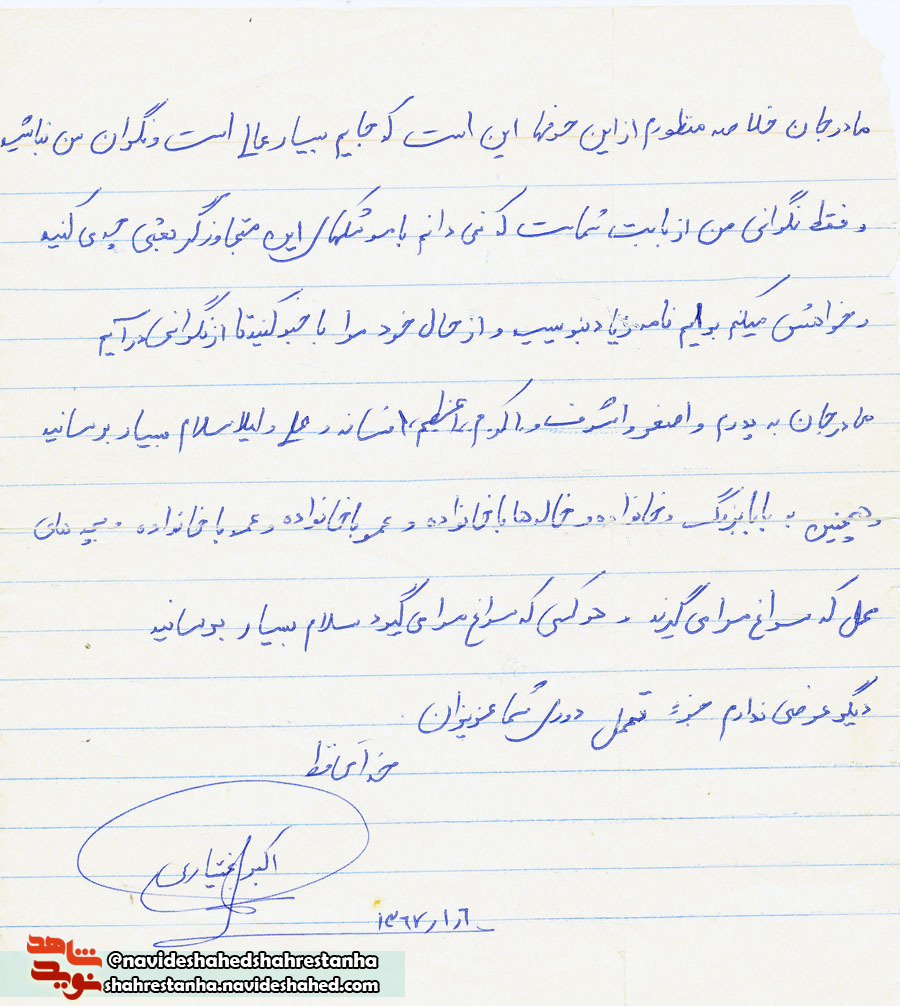 مادرجان خلاصه منظورم از این حرفها این است که جایم بسیار عالی است و نگران من نباشید
و فقط نگرانی من از بابت شماست که نمی دانم با موشکهای این متجاوزگر بعثی چه می کنید
و خواهش میکنم برایم نامه زیاد بنویسید و از حال خود مرا با خبر کنید تا از نگرانی درآیم
مادرجان به پدرم و اصغر و اشرف و اکرم، اعظم، افسانه و علی و لیلا سلام بسیار برسانید
و همچنین به بابابزرگ و خانواده و خاله ها با خانواده و عمو با خانواده و عمه با خانواده و بچه های
محل که سراغ مرا می گیرند و هر کسی که سراغ مرا می گیرد سلام بسیار برسانید
دیگر عرضی ندارم جزء تحمل دوری شما عزیزان
خداحافظ
اکبر بختیاری
۱۳۶۷/۱/۶
شاهد
نوید
@navideshahedshahrestanha
shahrestanha.navideshahed.com